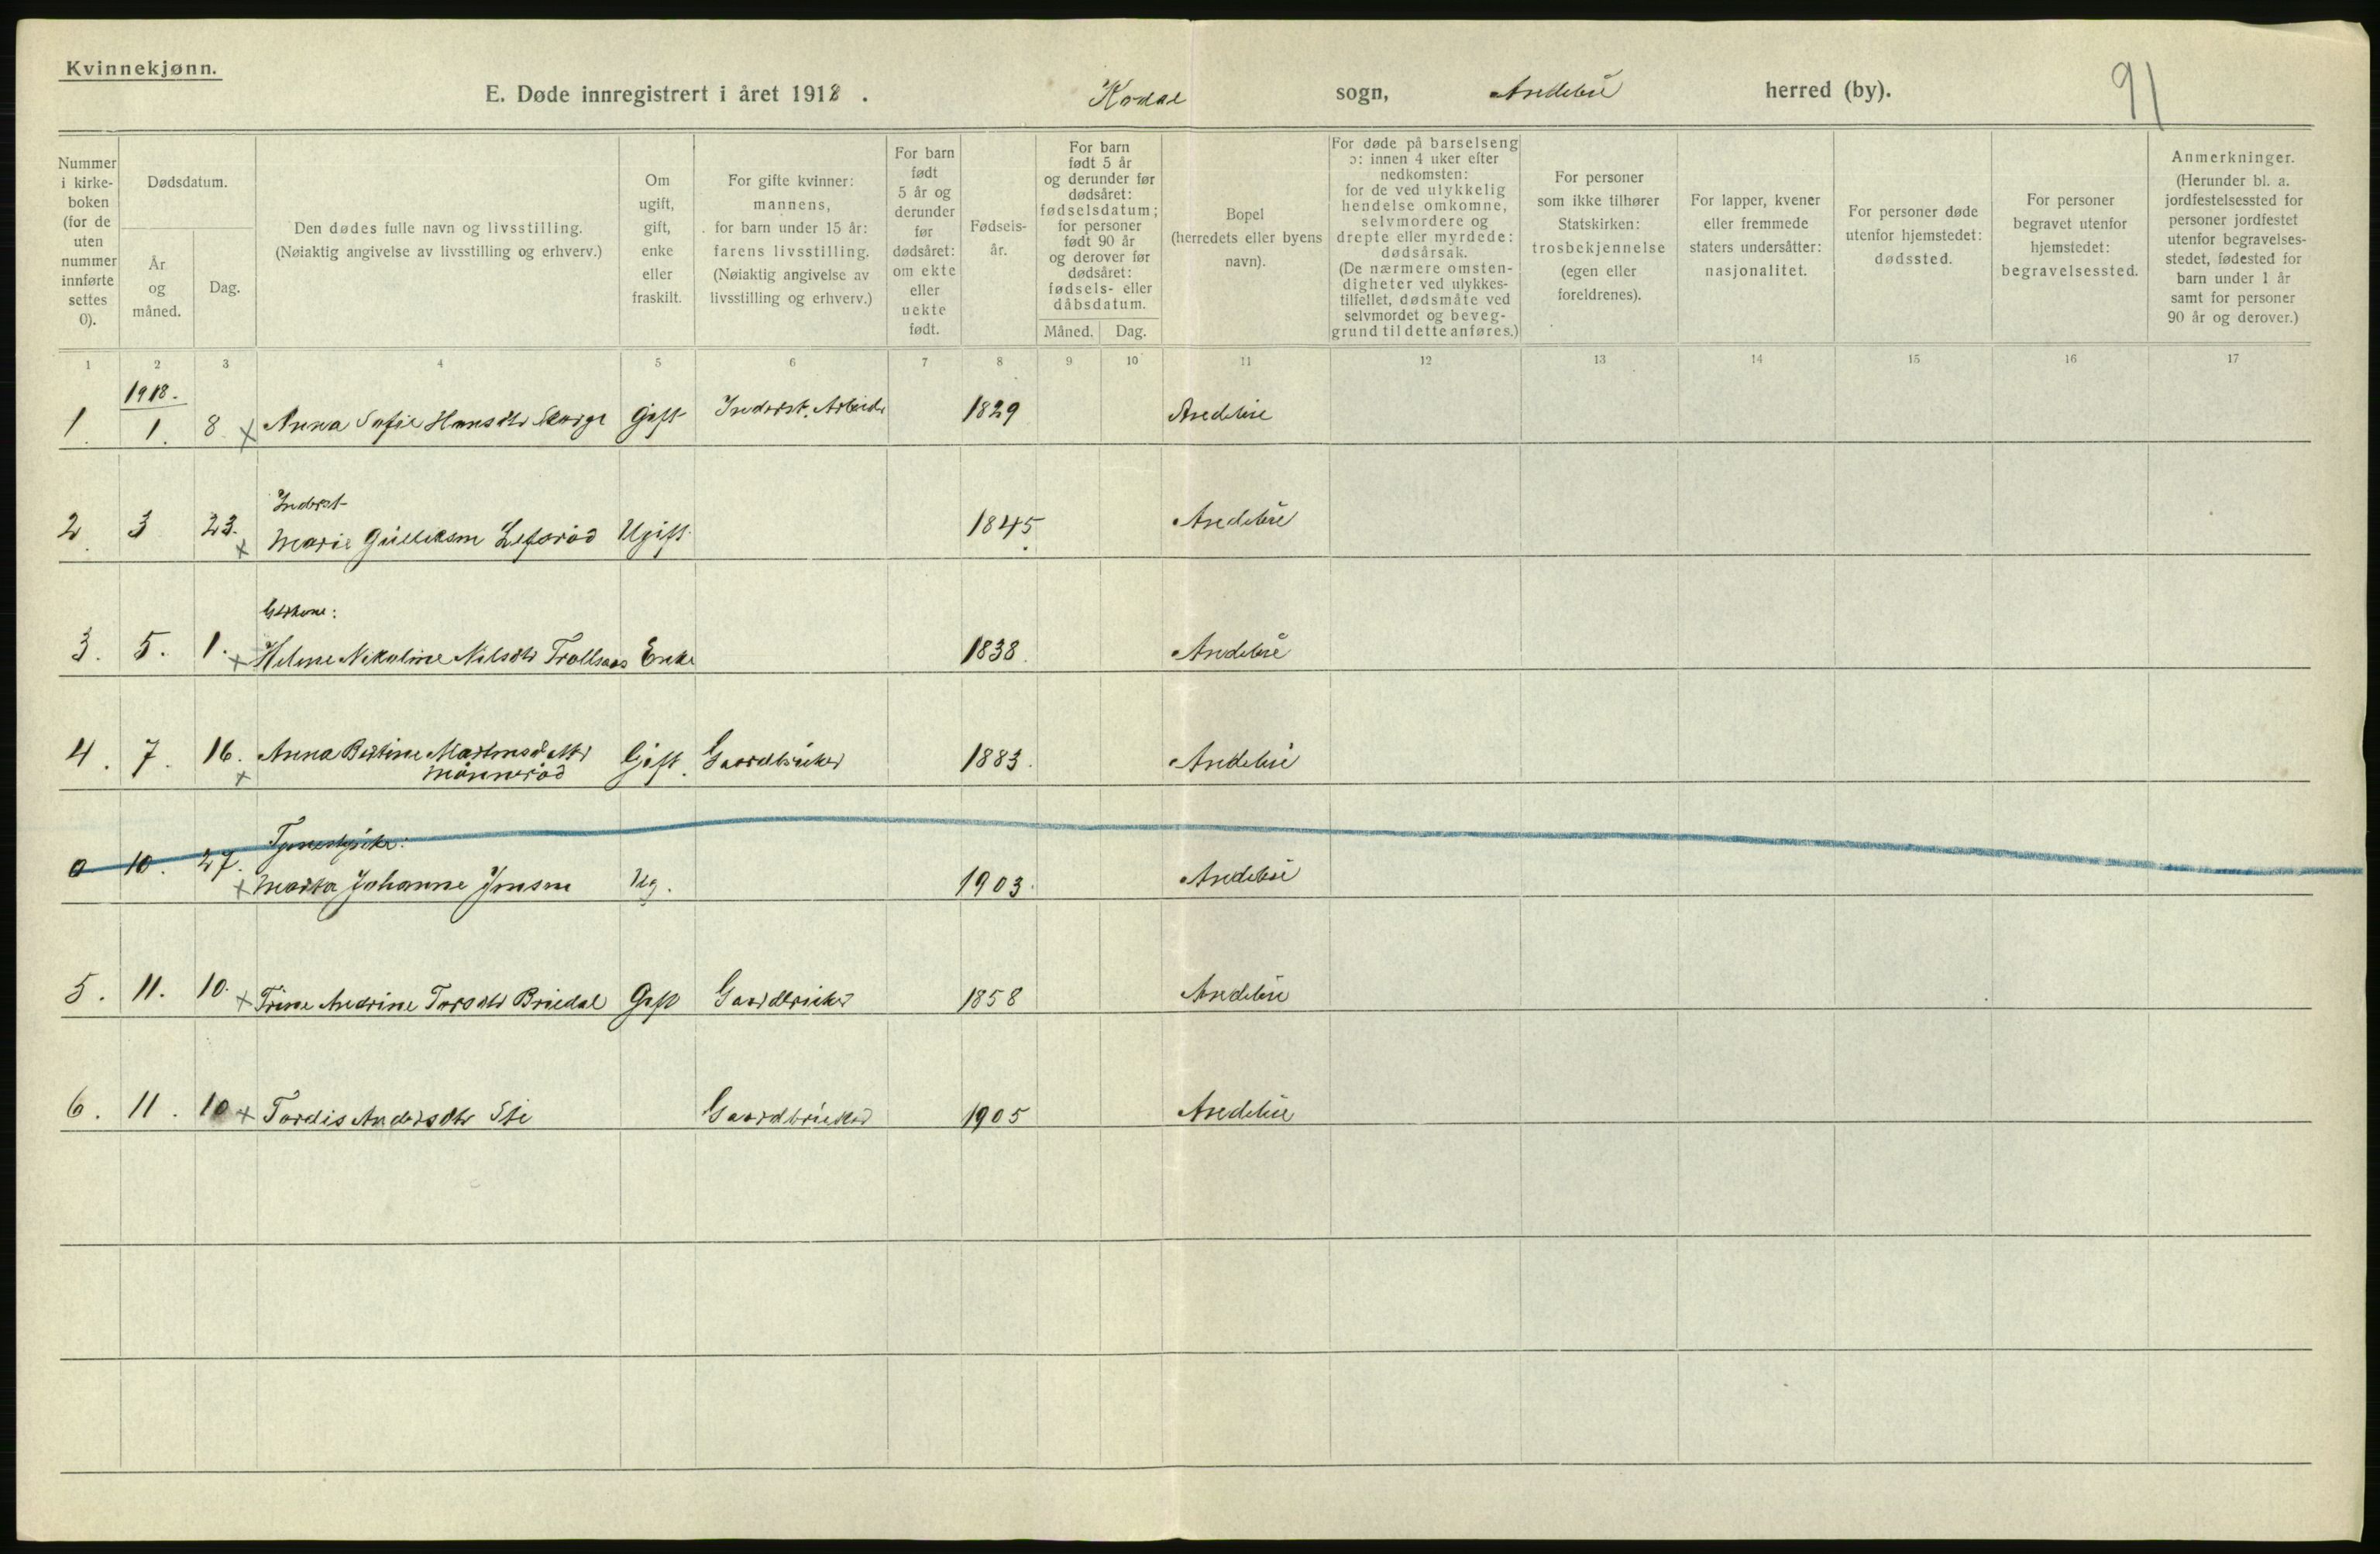 Kvinnekjønn.
E. Døde innregistrert i året 1918. Kodal sogn, Andebu herred (by). 91
Nummer i kirke-boken (for de uten nummer innførte settes 0).
Dødsdatum.
År og måned.
Dag.
Den dødes fulle navn og livsstilling.
(Nøiaktig angivelse av livsstilling og erhverv.)
Om ugift, gift, enke eller fraskilt.
For gifte kvinner: mannens, for barn under 15 år: farens livsstilling. (Nøiaktig angivelse av livsstilling og erhverv.)
For barn født 5 år og derunder før dødsåret: om ekte eller uekte født.
Fødsels-år.
For barn født 5 år og derunder før dødsåret: fødselsdatum; for personer født 90 år og derover før dødsåret: fødsels- eller dåbsdatum.
Måned. Dag.
Bopel (herredets eller byens navn).
For døde på barselseng ɔ: innen 4 uker efter nedkomsten: for de ved ulykkelig hendelse omkomne, selvmordere og drepte eller myrdede: dødsårsak. (De nærmere omsten-digheter ved ulykkes-tilfellet, dødsmåte ved selvmordet og beveg-grund til dette anføres.)
For personer som ikke tilhører Statskirken: trosbekjennelse (egen eller foreldrenes).
For lapper, kvener eller fremmede staters undersåtter: nasjonalitet.
For personer døde utenfor hjemstedet: dødssted.
For personer begravet utenfor hjemstedet: begravelsessted.
Anmerkninger. (Herunder bl. a. jordfestelsessted for personer jordfestet utenfor begravelses-stedet, fødested for barn under 1 år samt for personer 90 år og derover.)
1 2 3 4 5 6 7 8 9 10 11 12 13 14 15 16 17
1918.
1. 1. 8 x Anna Sofie Hansdtr Skorge Gift Inderst. Arbeider 1829 Andebu
Inderst
2. 3 23. x Marie Gulliksen Lefsrød Ugift. 1845. Andebu
3. 5. 1. x Helene Nikoline Nilsdtr Trollsaas Enke 1838. Andebu
4. 7. 16. x Anna Bertine Martinsdatter Gift. Gaardbruker 1883. Andebu
Mønnerød
Tjenestepike:
0 10. 27. x Marta Johanne Jensen Ug. 1903. Andebu
5. 11. 10. x Trine Andrine Torsdtr Bruedal Gift Gaardbruker 1858 Andebu
6. 11. 10 x Tordis Andersdtr Sti Gaardbruker 1905 Andebu